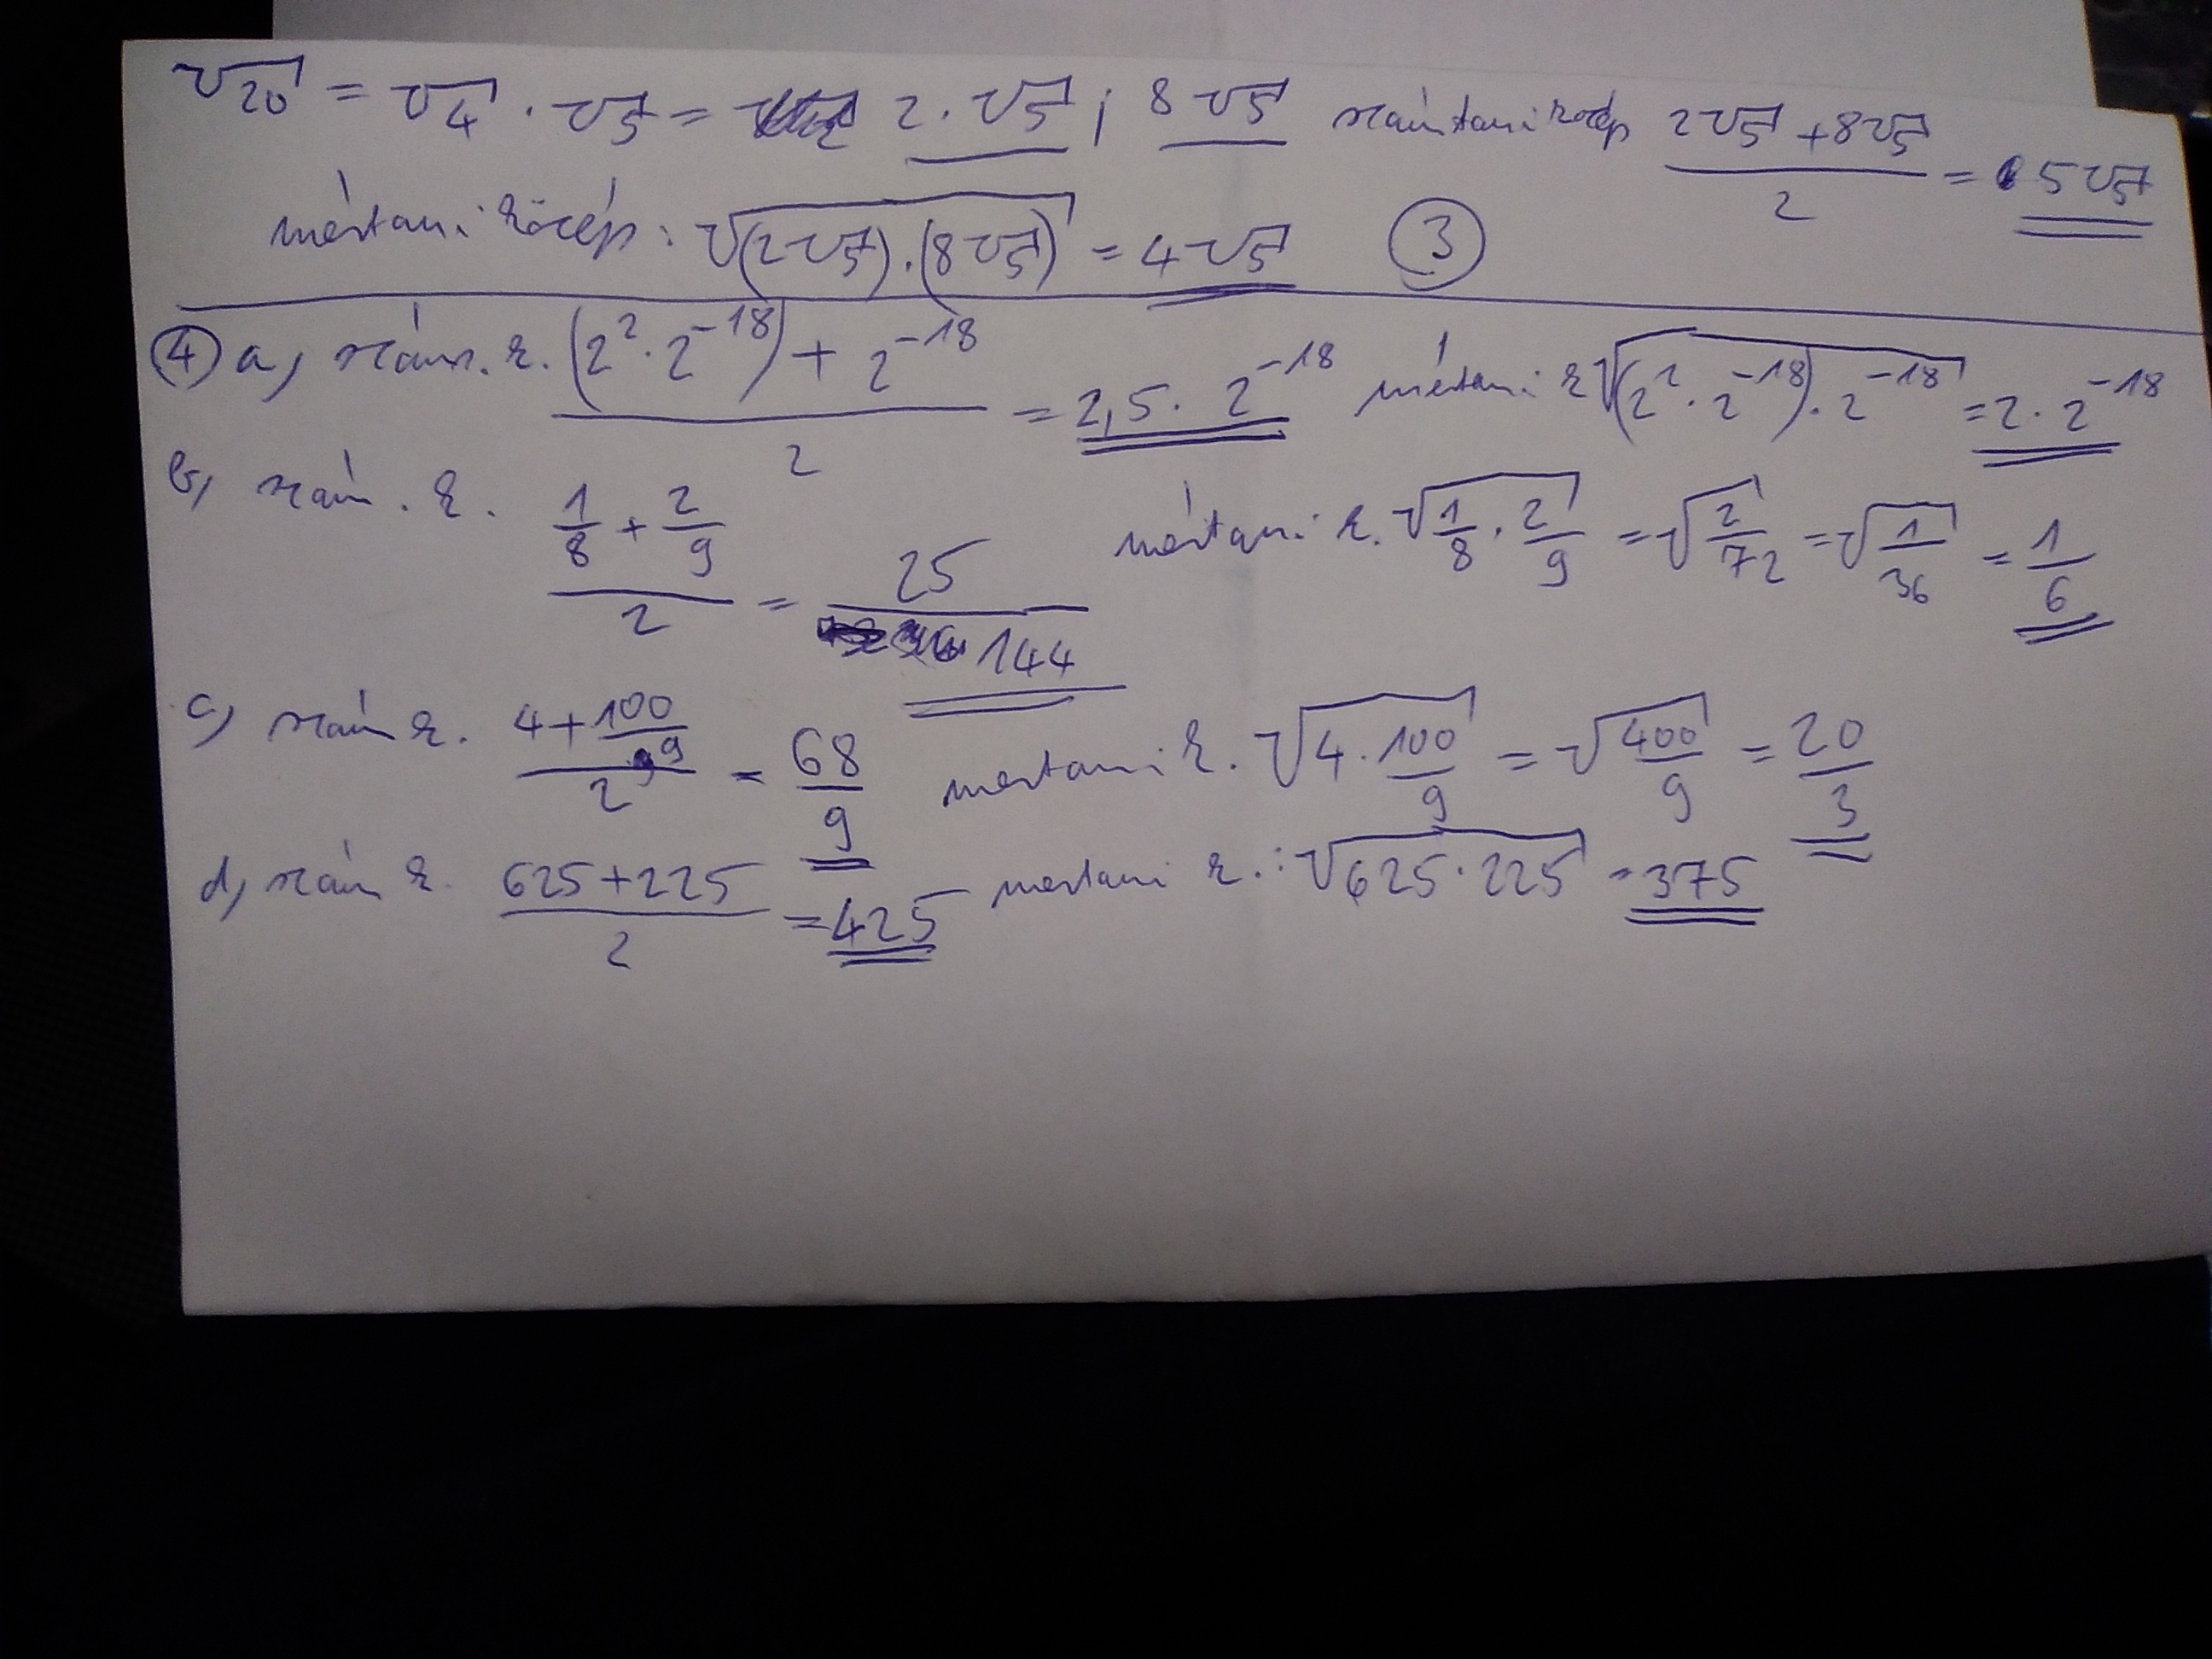 √20 = √4 · √5 = 2 · √5 ; 8√5 számtani közép (2√5 + 8√5)/2 = 5√5
mértani közép: √((2√5)·(8√5)) = 4√5 ③
④ a, szám. k. ((2² · 2⁻¹⁸) + 2⁻¹⁸)/2 = 2,5 · 2⁻¹⁸ mértani k √((2² · 2⁻¹⁸) · 2⁻¹⁸) = 2 · 2⁻¹⁸
b, szám. k. (1/8 + 2/9)/2 = 25/144 mértani k. √(1/8 · 2/9) = √(2/72) = √(1/36) = 1/6
c, szám k. (4 + 100/9)/2 = 68/9 mertani k. √(4 · 100/9) = √(400/9) = 20/3
d, szám k. (625 + 225)/2 = 425 mertani k.: √(625 · 225) = 375